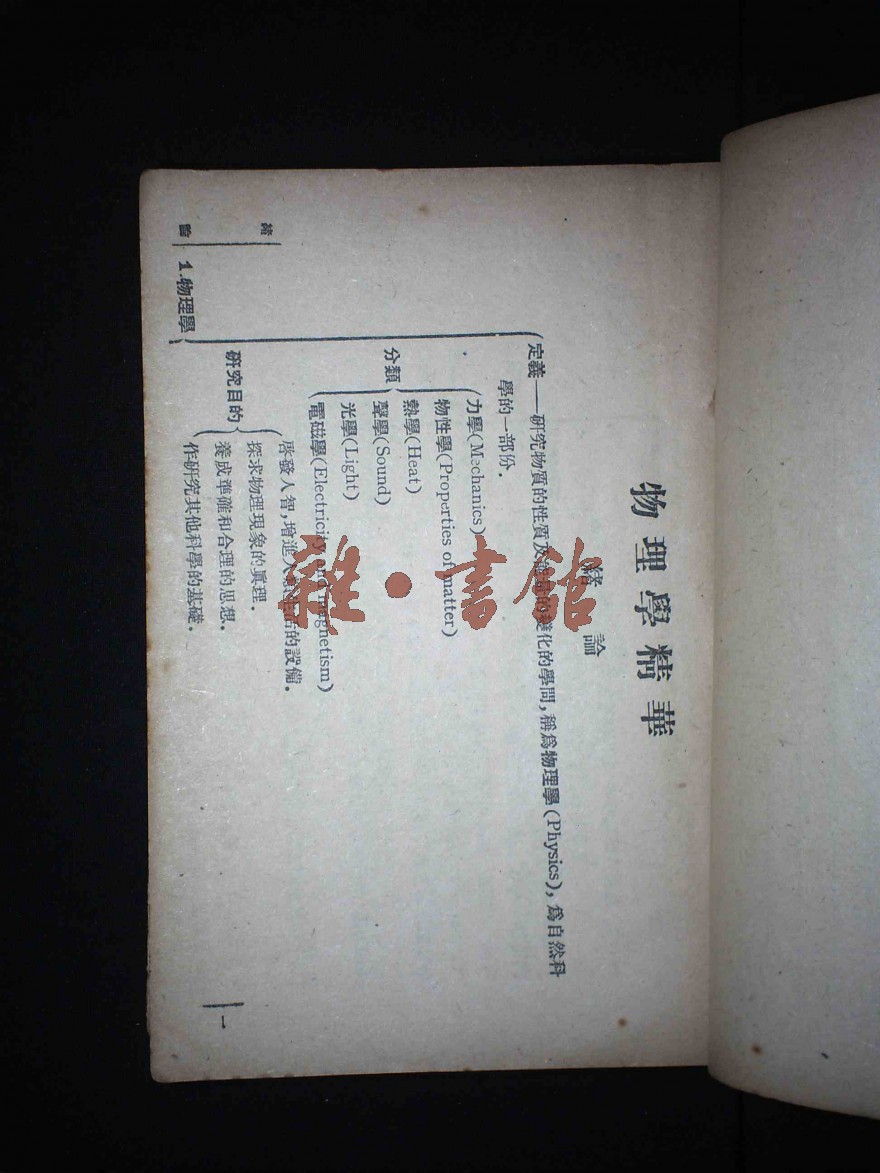 物理學精華
緒論
定義——研究物質的性質及能量的變化的學問，稱爲物理學(Physics)，爲自然科
學的一部份．
力學(Mechanics)
物性學(Properties of matter)
分類
熱學(Heat)
聲學(Sound)
光學(Light)
電磁學(Electricity and magnetism)
啓發人智，增進人類生活的設備．
研究目的
探求物理現象的眞理．
養成準確和合理的思想．
作研究其他科學的基礎．
1.物理學
緒
論
1
書